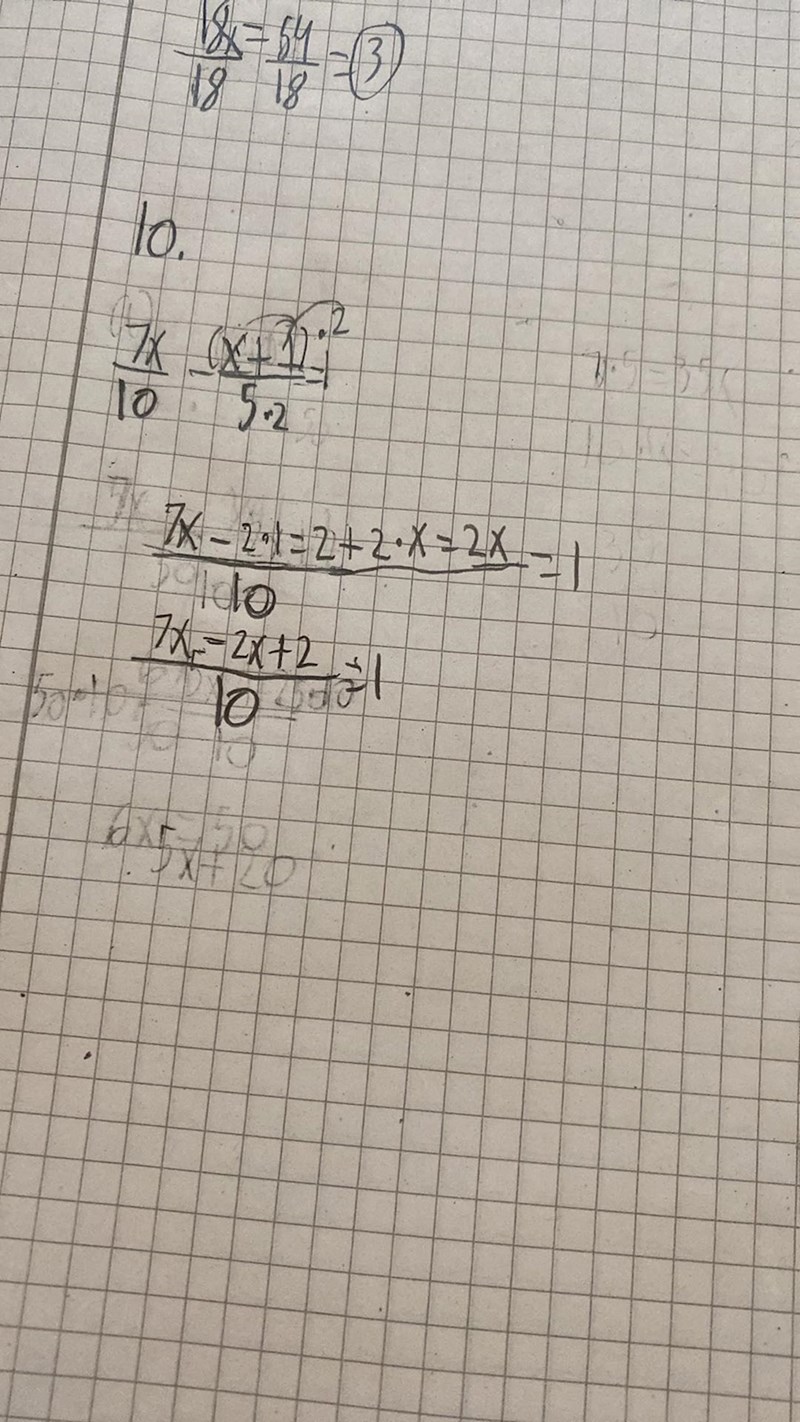 18x/18 = 54/18 = 3
10.
7x/10 - (x+1)·2/5·2 = 1
7x - 2·1=2+2·x=2x/10 = 1
7x - 2x+2/10 = 1
6x=50
5x+20